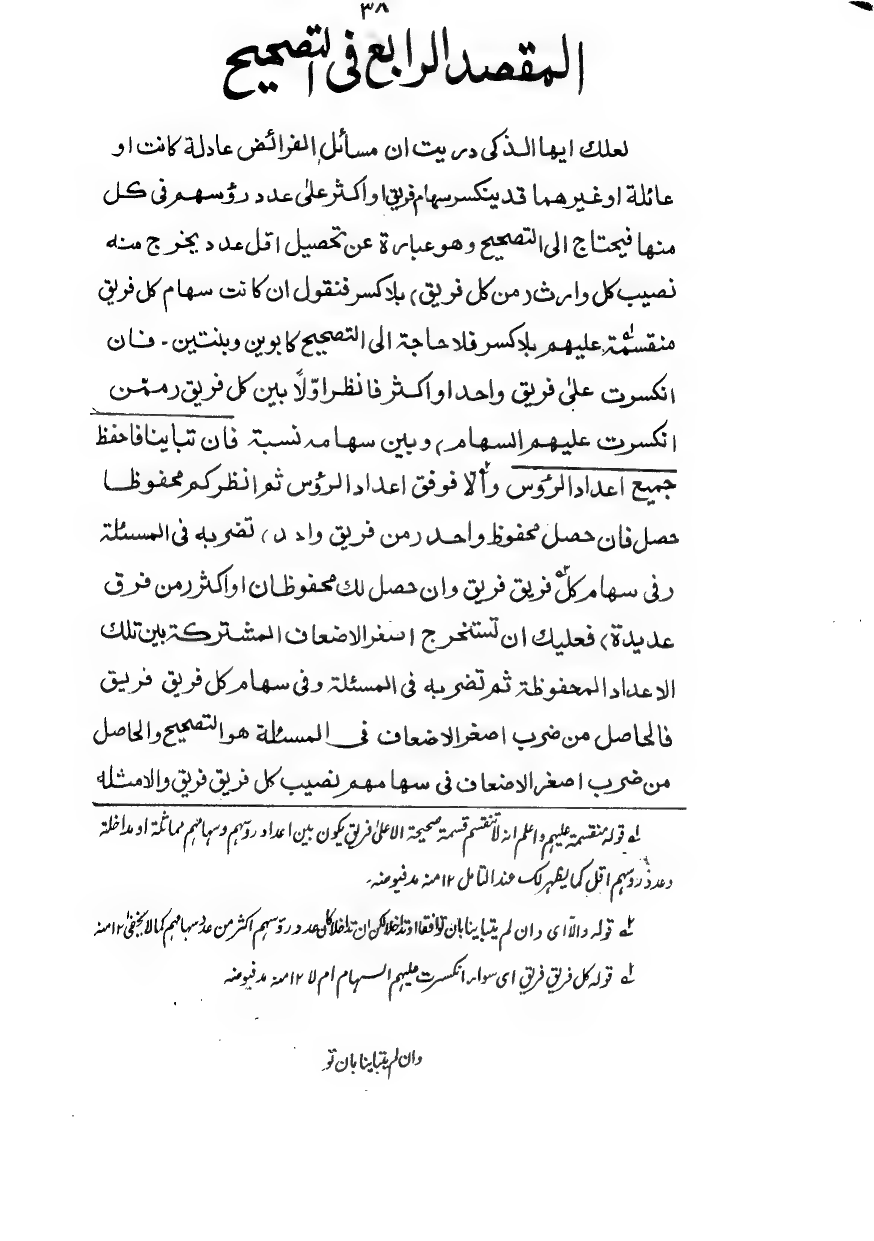 ٣٨
المقصد الرابع فى التصحيح
لعلك ايها الذكى دريت ان مسائل الفرائض عادلة كانت او
عائلة او غيرهما قد ينكسر سهام فريق او اكثر على عدد رؤسهم فى كل
منها فيحتاج الى التصحيح وهو عبارة عن تحصيل اقل عدد يخرج منه
نصيب كل وارث (من كل فريق) بلا كسر فنقول ان كانت سهام كل فريق
منقسمة عليهم بلا كسر فلا حاجة الى التصحيح كابوين وبنتين ۔ فان
انكسرت على فريق واحد او اكثر فانظر اوّلاً بين كل فريق (ممن
انكسرت عليهم السهام) وبين سهامه نسبة فان تباينا فاحفظ
جميع اعداد الرؤس والا فوفق اعداد الرؤس ثم انظر كم محفوظا
حصل فان حصل محفوظ واحد (من فريق واحد) تضربه فى المسئلة
وفى سهام كل فريق فريق وان حصل لك محفوظان او اكثر (من فرق
عديدة) فعليك ان تستخرج اصغر الاضعاف المشتركة بين تلك
الاعداد المحفوظة ثم تضربه فى المسئلة وفى سهام كل فريق فريق
فالحاصل من ضرب اصغر الاضعاف فى المسئلة هو التصحيح والحاصل
من ضرب اصغر الاضعاف فى سهامهم نصيب كل فريق فريق والامثلة
له قوله منقسمة عليهم واعلم انه لا تنقسم قسمة صحيحة الا على فريق يكون بين اعداد رؤسهم وسهامهم مماثلة او مداخلة
وعدد رؤسهم اقل كما يظهر لك عند التامل ١٢ منه مدفيوضه۔
قوله والاّ اى وان لم يتباينا بان توافقا او تداخلا لكن ان تداخلا كان عدد رؤسهم اكثر من عدد سهامهم كما لا يخفى ١٢ منه
قوله كل فريق فريق اى سواء انكسرت عليهم السهام ام لا ١٢ منه مدفيوضه
وان لم يتباينا بان تو